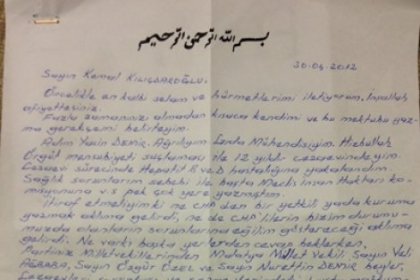 بسم الله الرحمن الرحيم
30.04.2012
Sayın Kemal KILIÇDAROĞLU,
Öncelikle en kalbi selam ve hürmetlerimi iletiyorum. İnşallah
afiyettesiniz.
Fazla zamanınızı almadan kısaca kendimi ve bu mektubu yaz
ma gerekçemi belirteyim.
Adım Yasin DEMİR. Mühendisiyim. Hizbullah
Örgüt mensubiyeti suçlaması ile 12 yıldır cezaevindeyim.
Cezaevi sürecinde Hepatit B ve D hastalığına yakalandım.
Sağlık sorunlarım sebebi ile başta Meclis insan Hakları ko-
misyonuna v.s pek çok yere yazmıştım.
İtiraf etmeliyim ki ne CHP den bir yetkili yada kuruma
yazmak aklıma gelirdi, ne de CHP lilerin bizim durumu-
muzda olanların sorunlarına eğilim göstereceği aklıma
gelirdi. Ne varki başka yerlerden cevap beklerken,
Partiniz Milletvekillerinden Malatya Millet Vekili Sayın Veli
AĞBABA, Sayın Özgür Özel ve Sayın Nurettin DEMİR beyler